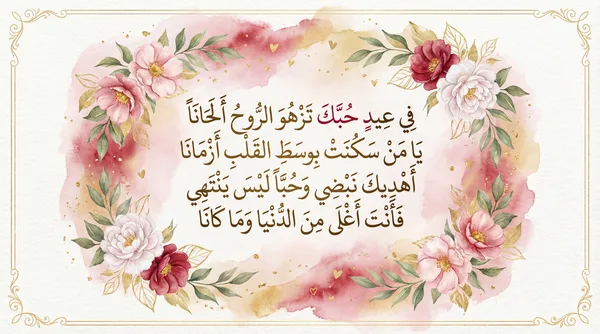 فِي عِيدِ حُبَّكَ تَزْهُوَ الرُّوحُ أَلْحَانَاً
يَا مَنْ سَكُنَتْ بِوسَطِ القَلْبِ أَزْمَانَا
أَهْدِيكَ نَبْضِي وَحُبَّاً لَيْسَ يَنْتَهِي
فَأَنْتَ أَغْلَى مِنَ الدُّنْيَا وَمَا كَانَا